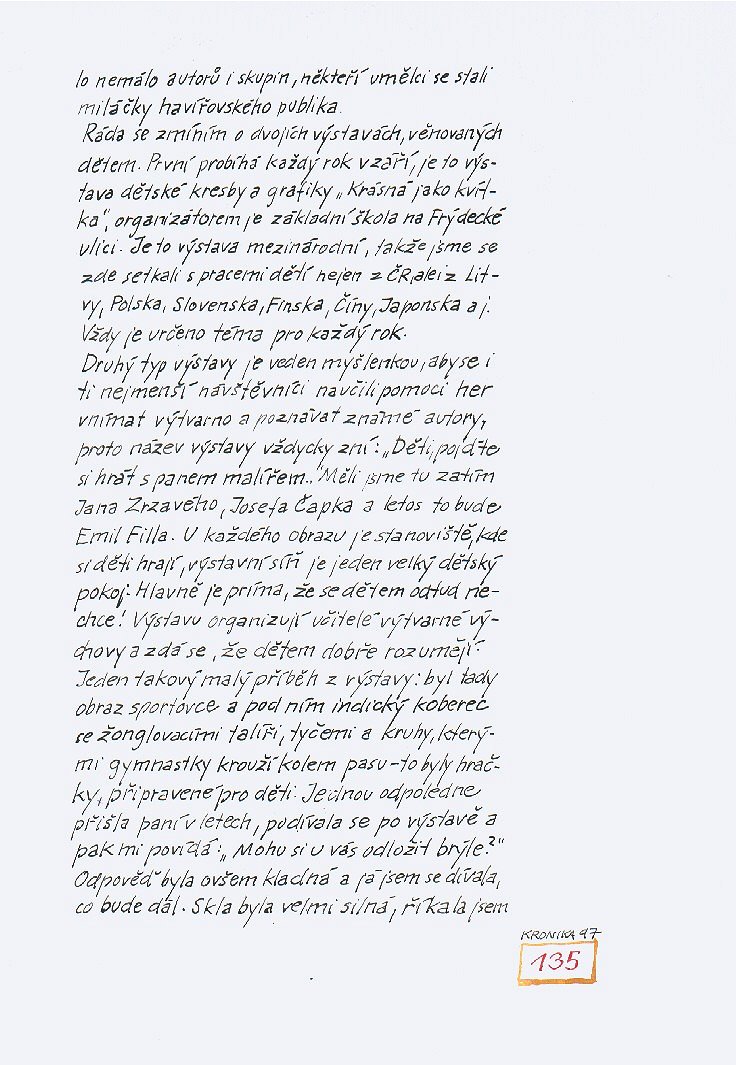 lo nemálo autorů i skupin, někteří umělci se stali
miláčky havířovského publika.
Ráda se zmíním o dvojích výstavách, věnovaných
dětem. První probíhá každý rok v září, je to výs-
tava dětské kresby a grafiky „Krásná jako kvít-
ka", organizátorem je základní škola na Frýdecké
ulici. Je to výstava mezinárodní, takže jsme se
zde setkali s pracemi dětí nejen z ČR, ale i z Lit-
vy, Polska, Slovenska, Finska, Číny, Japonska a j.
Vždy je určeno téma pro každý rok.
Druhý typ výstavy je veden myšlenkou, aby se i
ti nejmenší návštěvníci naučili pomocí her
vnímat výtvarno a poznávat známé autory,
proto název výstavy vždycky zní: „Děti, pojďte
si hrát s panem malířem." Měli jsme tu zatím
Jana Zrzavého, Josefa Čapka a letos to bude
Emil Filla. U každého obrazu je stanoviště, kde
si děti hrají, výstavní síň je jeden velký dětský
pokoj. Hlavně je príma, že se dětem odtud ne-
chce! Výstavu organizují učitelé výtvarné vý-
chovy a zdá se, že dětem dobře rozumějí.
Jeden takový malý příběh z výstavy: byl tady
obraz sportovce a pod ním indický koberec
se žonglovacími talíři, tyčemi a kruhy, který-
mi gymnastky krouží kolem pasu – to byly hrač-
ky, připravené pro děti. Jednou odpoledne
přišla paní v letech, podívala se po výstavě a
pak mi povídá: „Mohu si u vás odložit brýle?"
Odpověď byla ovšem kladná a já jsem se dívala,
co bude dál. Skla byla velmi silná, říkala jsem
KRONIKA 97
135